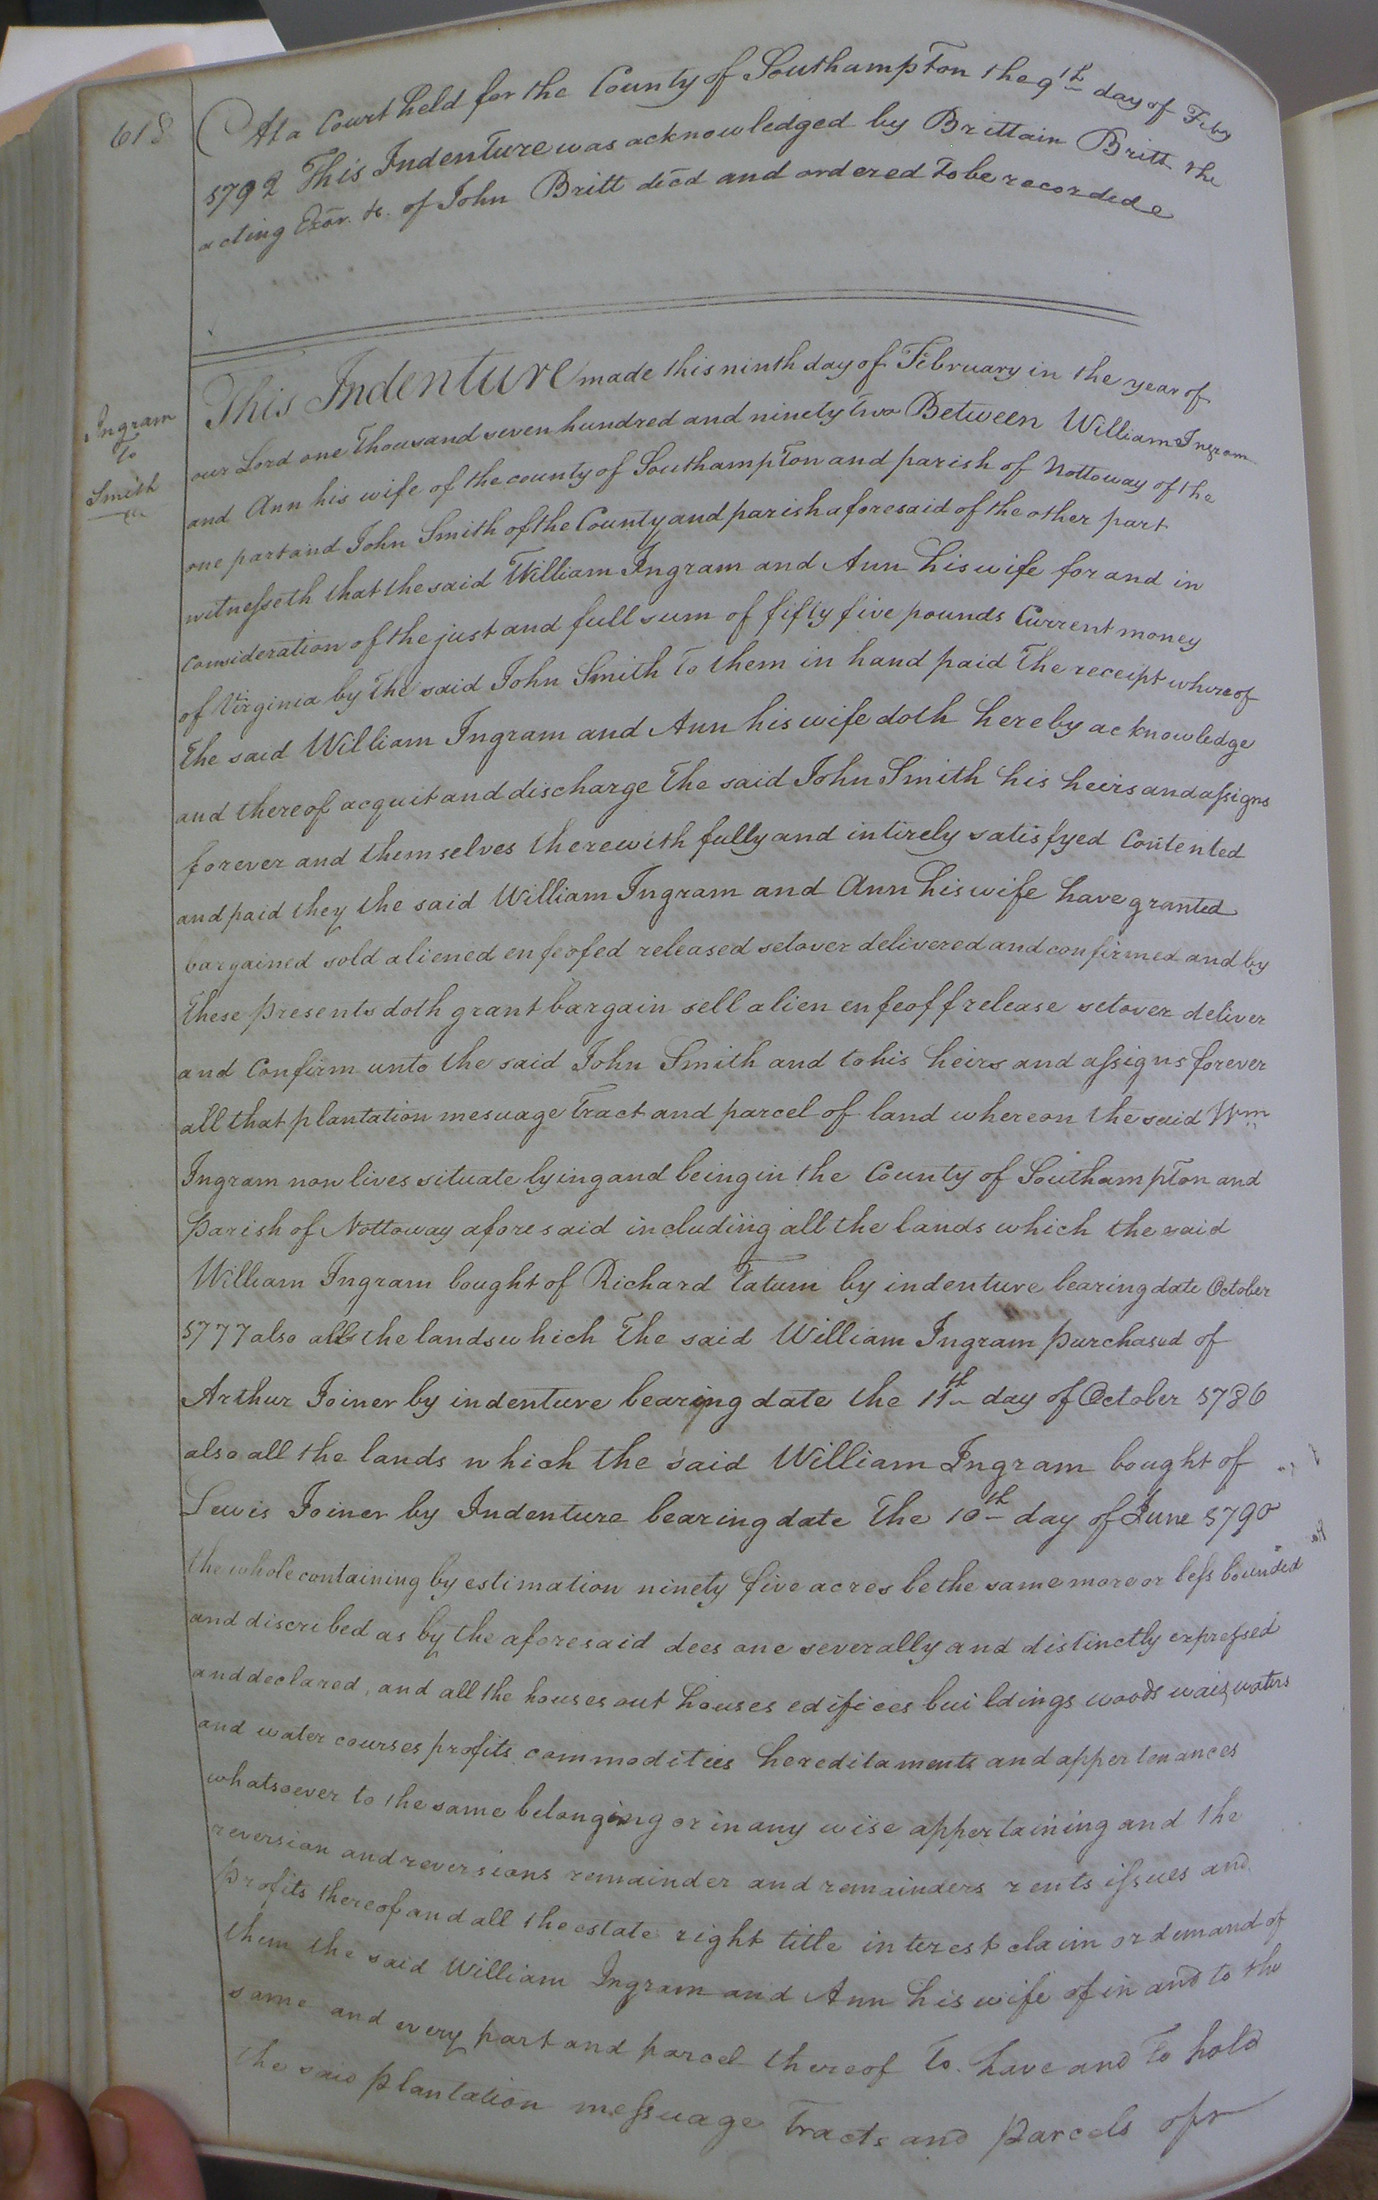 618
At a Court held for the County of Southampton the 9th day of Feby
1792 This Indenture was acknowledged by Brittain Britt the
acting Exor. &c. of John Britt decd and ordered to be recorded
Ingram
to
Smith
This Indenture made this ninth day of February in the year of
our Lord one Thousand seven hundred and ninety two Between William Ingram
and Ann his wife of the county of Southampton and parish of Nottoway of the
one part and John Smith of the County and parish aforesaid of the other part
witnesseth that the said William Ingram and Ann his wife for and in
consideration of the just and full sum of fifty five pounds Current money
of Virginia by the said John Smith to them in hand paid the receipt whereof
the said William Ingram and Ann his wife doth hereby acknowledge
and thereof acquit and discharge the said John Smith his heirs and assigns
forever and themselves therewith fully and intirely satisfyed contented
and paid they the said William Ingram and Ann his wife have granted
bargained sold aliened enfeofed released setover delivered and confirmed and by
these presents doth grant bargain sell alien enfeoff release setover deliver
and Confirm unto the said John Smith and to his heirs and assigns forever
all that plantation mesuage tract and parcel of land whereon the said Wm
Ingram now lives situate lying and being in the County of Southampton and
parish of Nottoway aforesaid including all the lands which the said
William Ingram bought of Richard Tatum by indenture bearing date October
1777 also all the lands which the said William Ingram purchased of
Arthur Joiner by indenture bearing date the 11th day of October 1786
also all the lands which the said William Ingram bought of
Lewis Joiner by Indenture bearing date the 10th day of June 1790
the whole containing by estimation ninety five acres be the same more or less bounded
and discribed as by the aforesaid dees one severally and distinctly expressed
and declared, and all the houses out houses edifices buildings woods wais waters
and water courses profits commodities hereditaments and appertenances
whatsoever to the same belonging or in any wise appertaining and the
reversion and reversions remainder and remainders rents issues and
profits thereof and all the estate right title interest claim or demand of
them the said William Ingram and Ann his wife of in and to the
same and every part and parcel thereof To have and To hold
the said plantation messuage tracts and parcels of